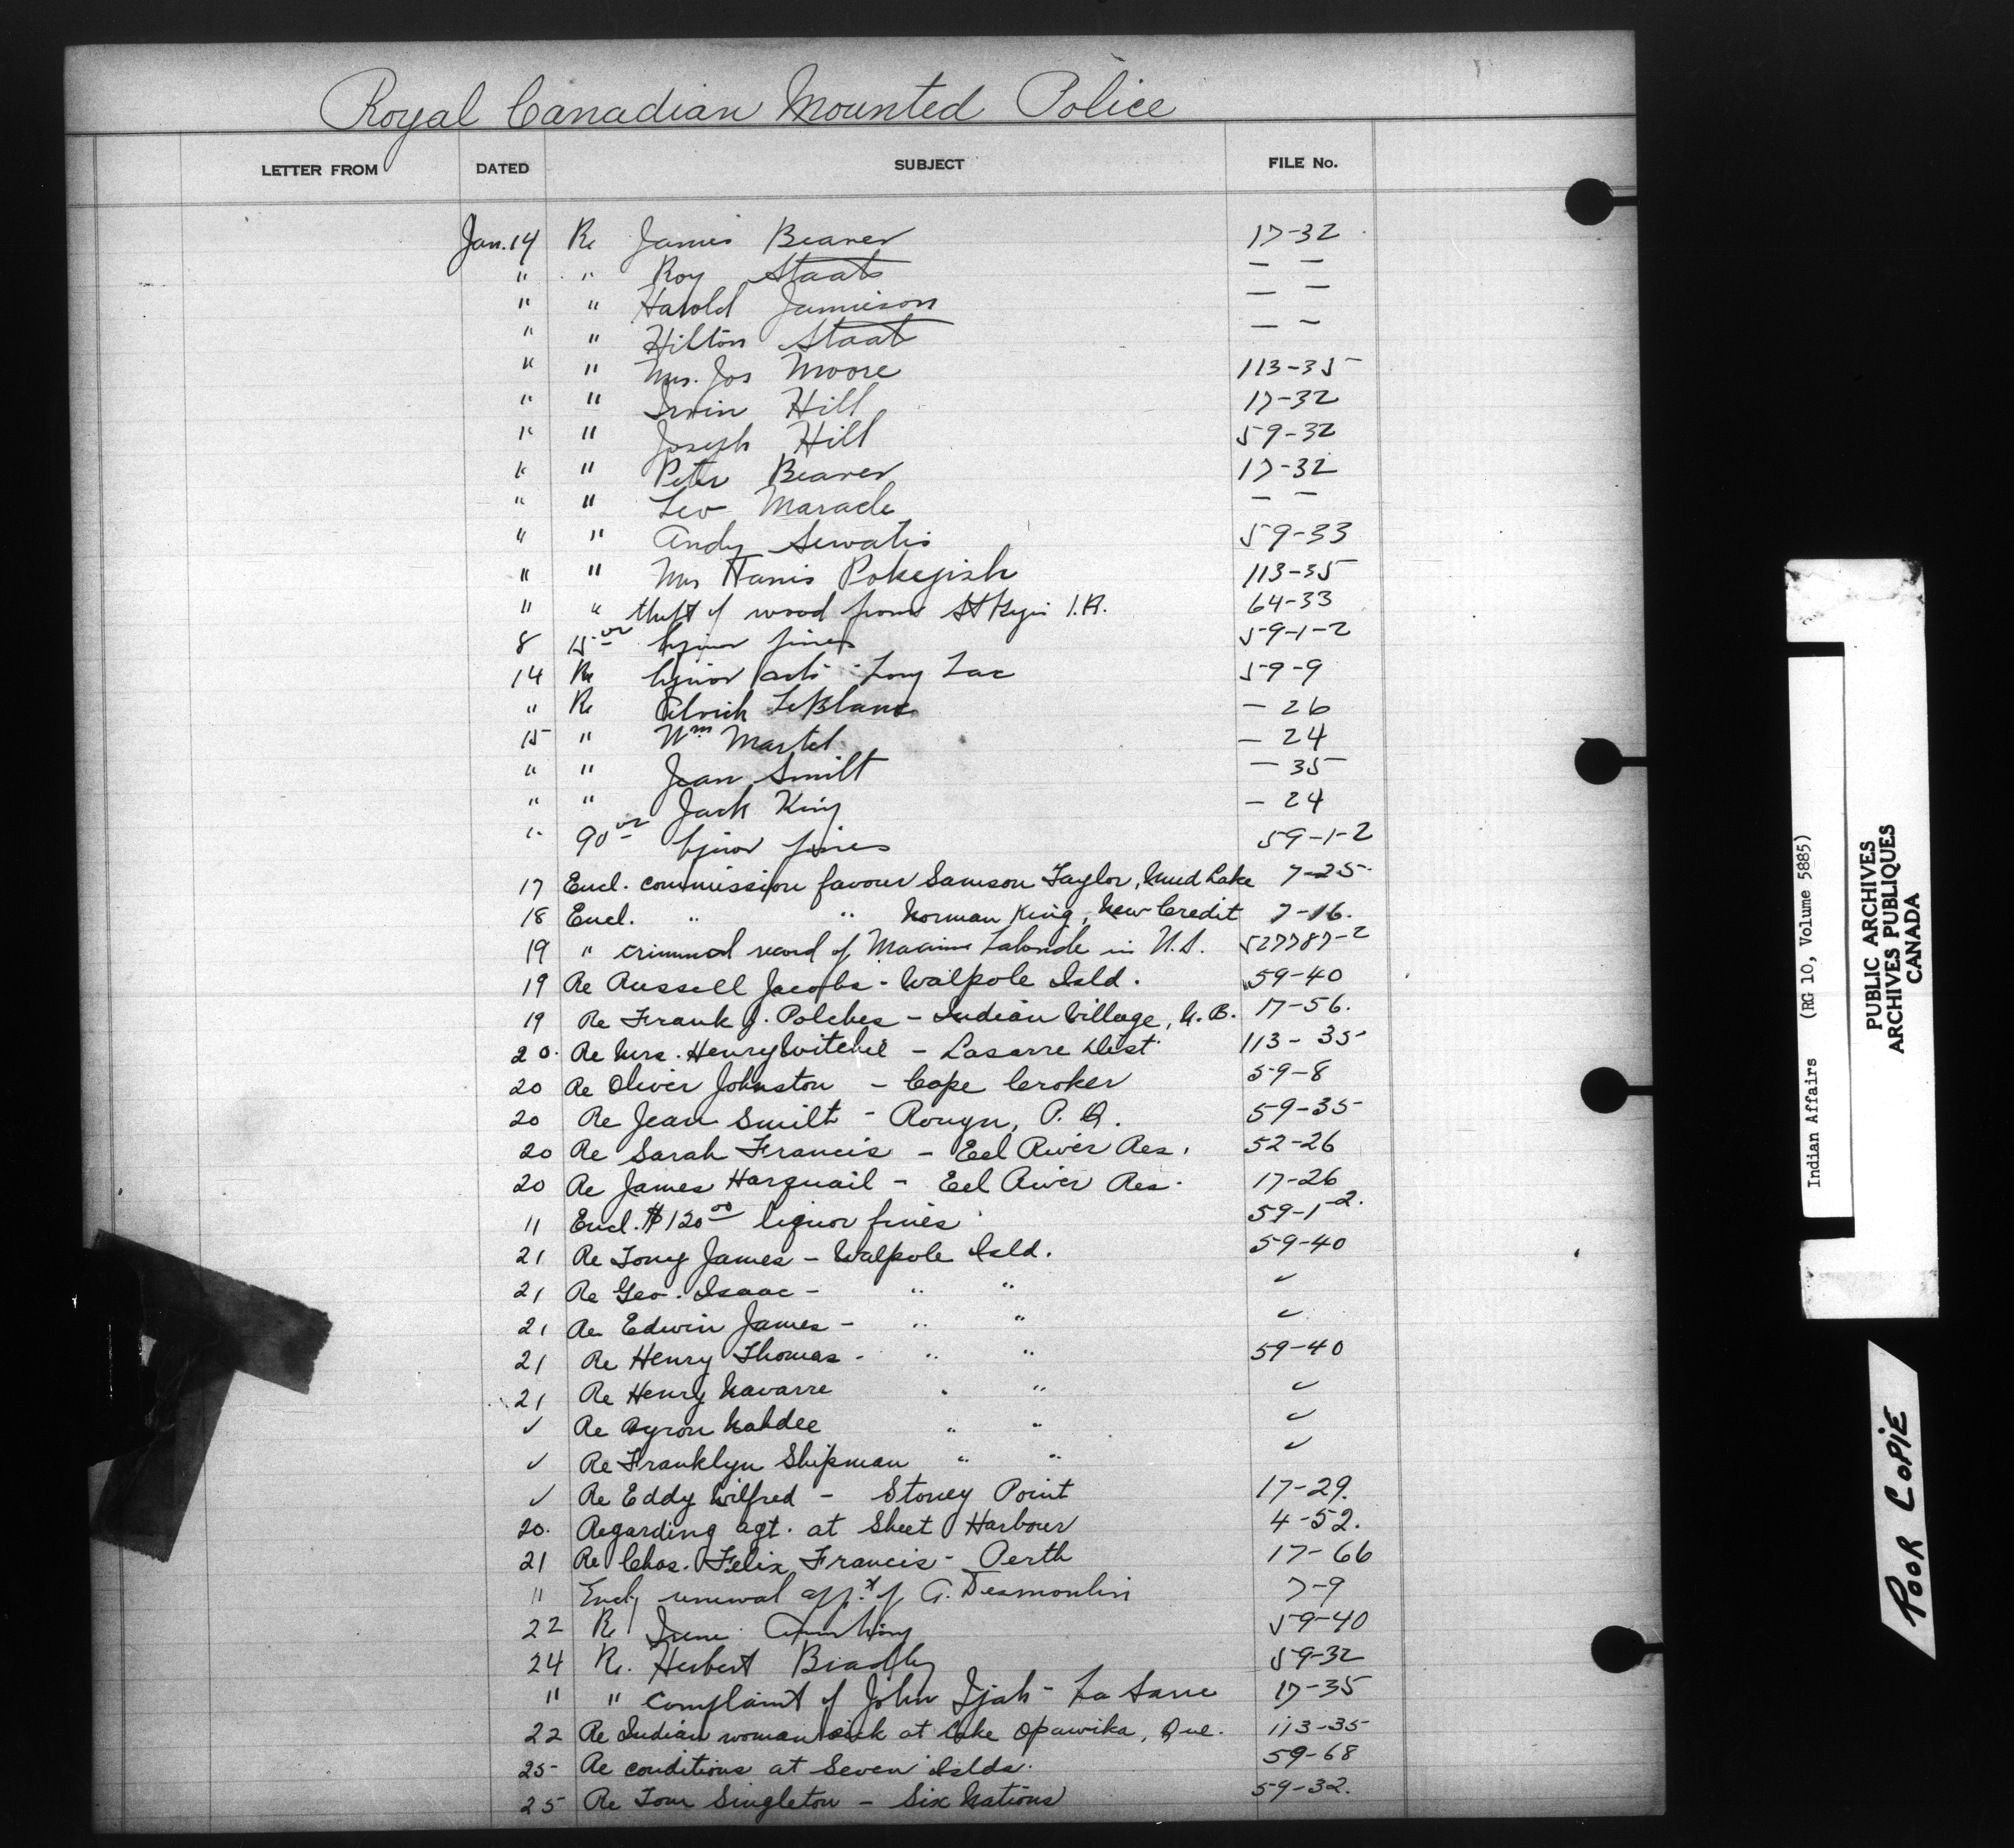 Royal Canadian Mounted Police
LETTER FROM DATED SUBJECT FILE No.
Jan. 14 Re James Beaver 17-32
" " Roy Staats — —
" " Harold Jamieson — —
" " Hilton Staats — —
" " Mrs. Jos Moore 113-35
" " Irwin Hill 17-32
" " Joseph Hill 59-32
" " Peter Beaver 17-32
" " Leo Maracle — —
" " Andy Sewatis 59-33
" " Mrs Harris Pokejish 113-35
" " theft of wood from St Regis I.R. 64-33
8 15 00 liquor fines 59-1-2
14 Re liquor acts - Long Lac 59-9
" Re LeBlanc — 26
15 " Wm Martel — 24
" " Jean Smilt — 35
" " Jack King — 24
" 90 00 liquor fines 59-1-2
17 Encl. commission favour Samson Taylor, Mud Lake 7-25.
18 Encl. " " Norman King, New Credit 7-16.
19 " criminal record of Maxime Lalonde in U.S. 527787-2
19 Re Russell Jacobs - Walpole Isld. 59-40
19 Re Frank J. Polches - Indian Village, N.B. 17-56.
20. Re Mrs. Henry - Lasarre Dist 113-35
20 Re Oliver Johnston - Cape Croker 59-8
20 Re Jean Smilt - Rouyn, P.Q. 59-35
20 Re Sarah Francis - Eel River Res. 52-26
20 Re James Harquail - Eel River Res. 17-26
11 Encl. $120 00 liquor fines 59-1-2.
21 Re Tony James - Walpole Isld. 59-40
21 Re Geo. Isaac - " " ✓
21 Re Edwin James - " " ✓
21 Re Henry Thomas - " " 59-40
21 Re Henry Navarre " " ✓
✓ Re Byron Nahdee " " ✓
✓ Re Franklyn Shipman " " ✓
✓ Re Eddy Wilfred - Stoney Point 17-29.
20. Regarding agt. at Sheet Harbour 4-52.
21 Re Chas. Felix Francis - Perth 17-66
11 Encl. renewal of A. Desmoulin 7-9
22 Re Irene 59-40
24 Re. Herbert Bradley 59-32
" " complaint of John Ijah - La Sarre 17-35
22 Re Indian woman sick at Lake Opawika, Que. 113-35
25 Re conditions at Seven Islds. 59-68
25 Re Tom Singleton - Six Nations 59-32.
Indian Affairs (RG 10, Volume 5885)
PUBLIC ARCHIVES
ARCHIVES PUBLIQUES
CANADA
POOR COPIE